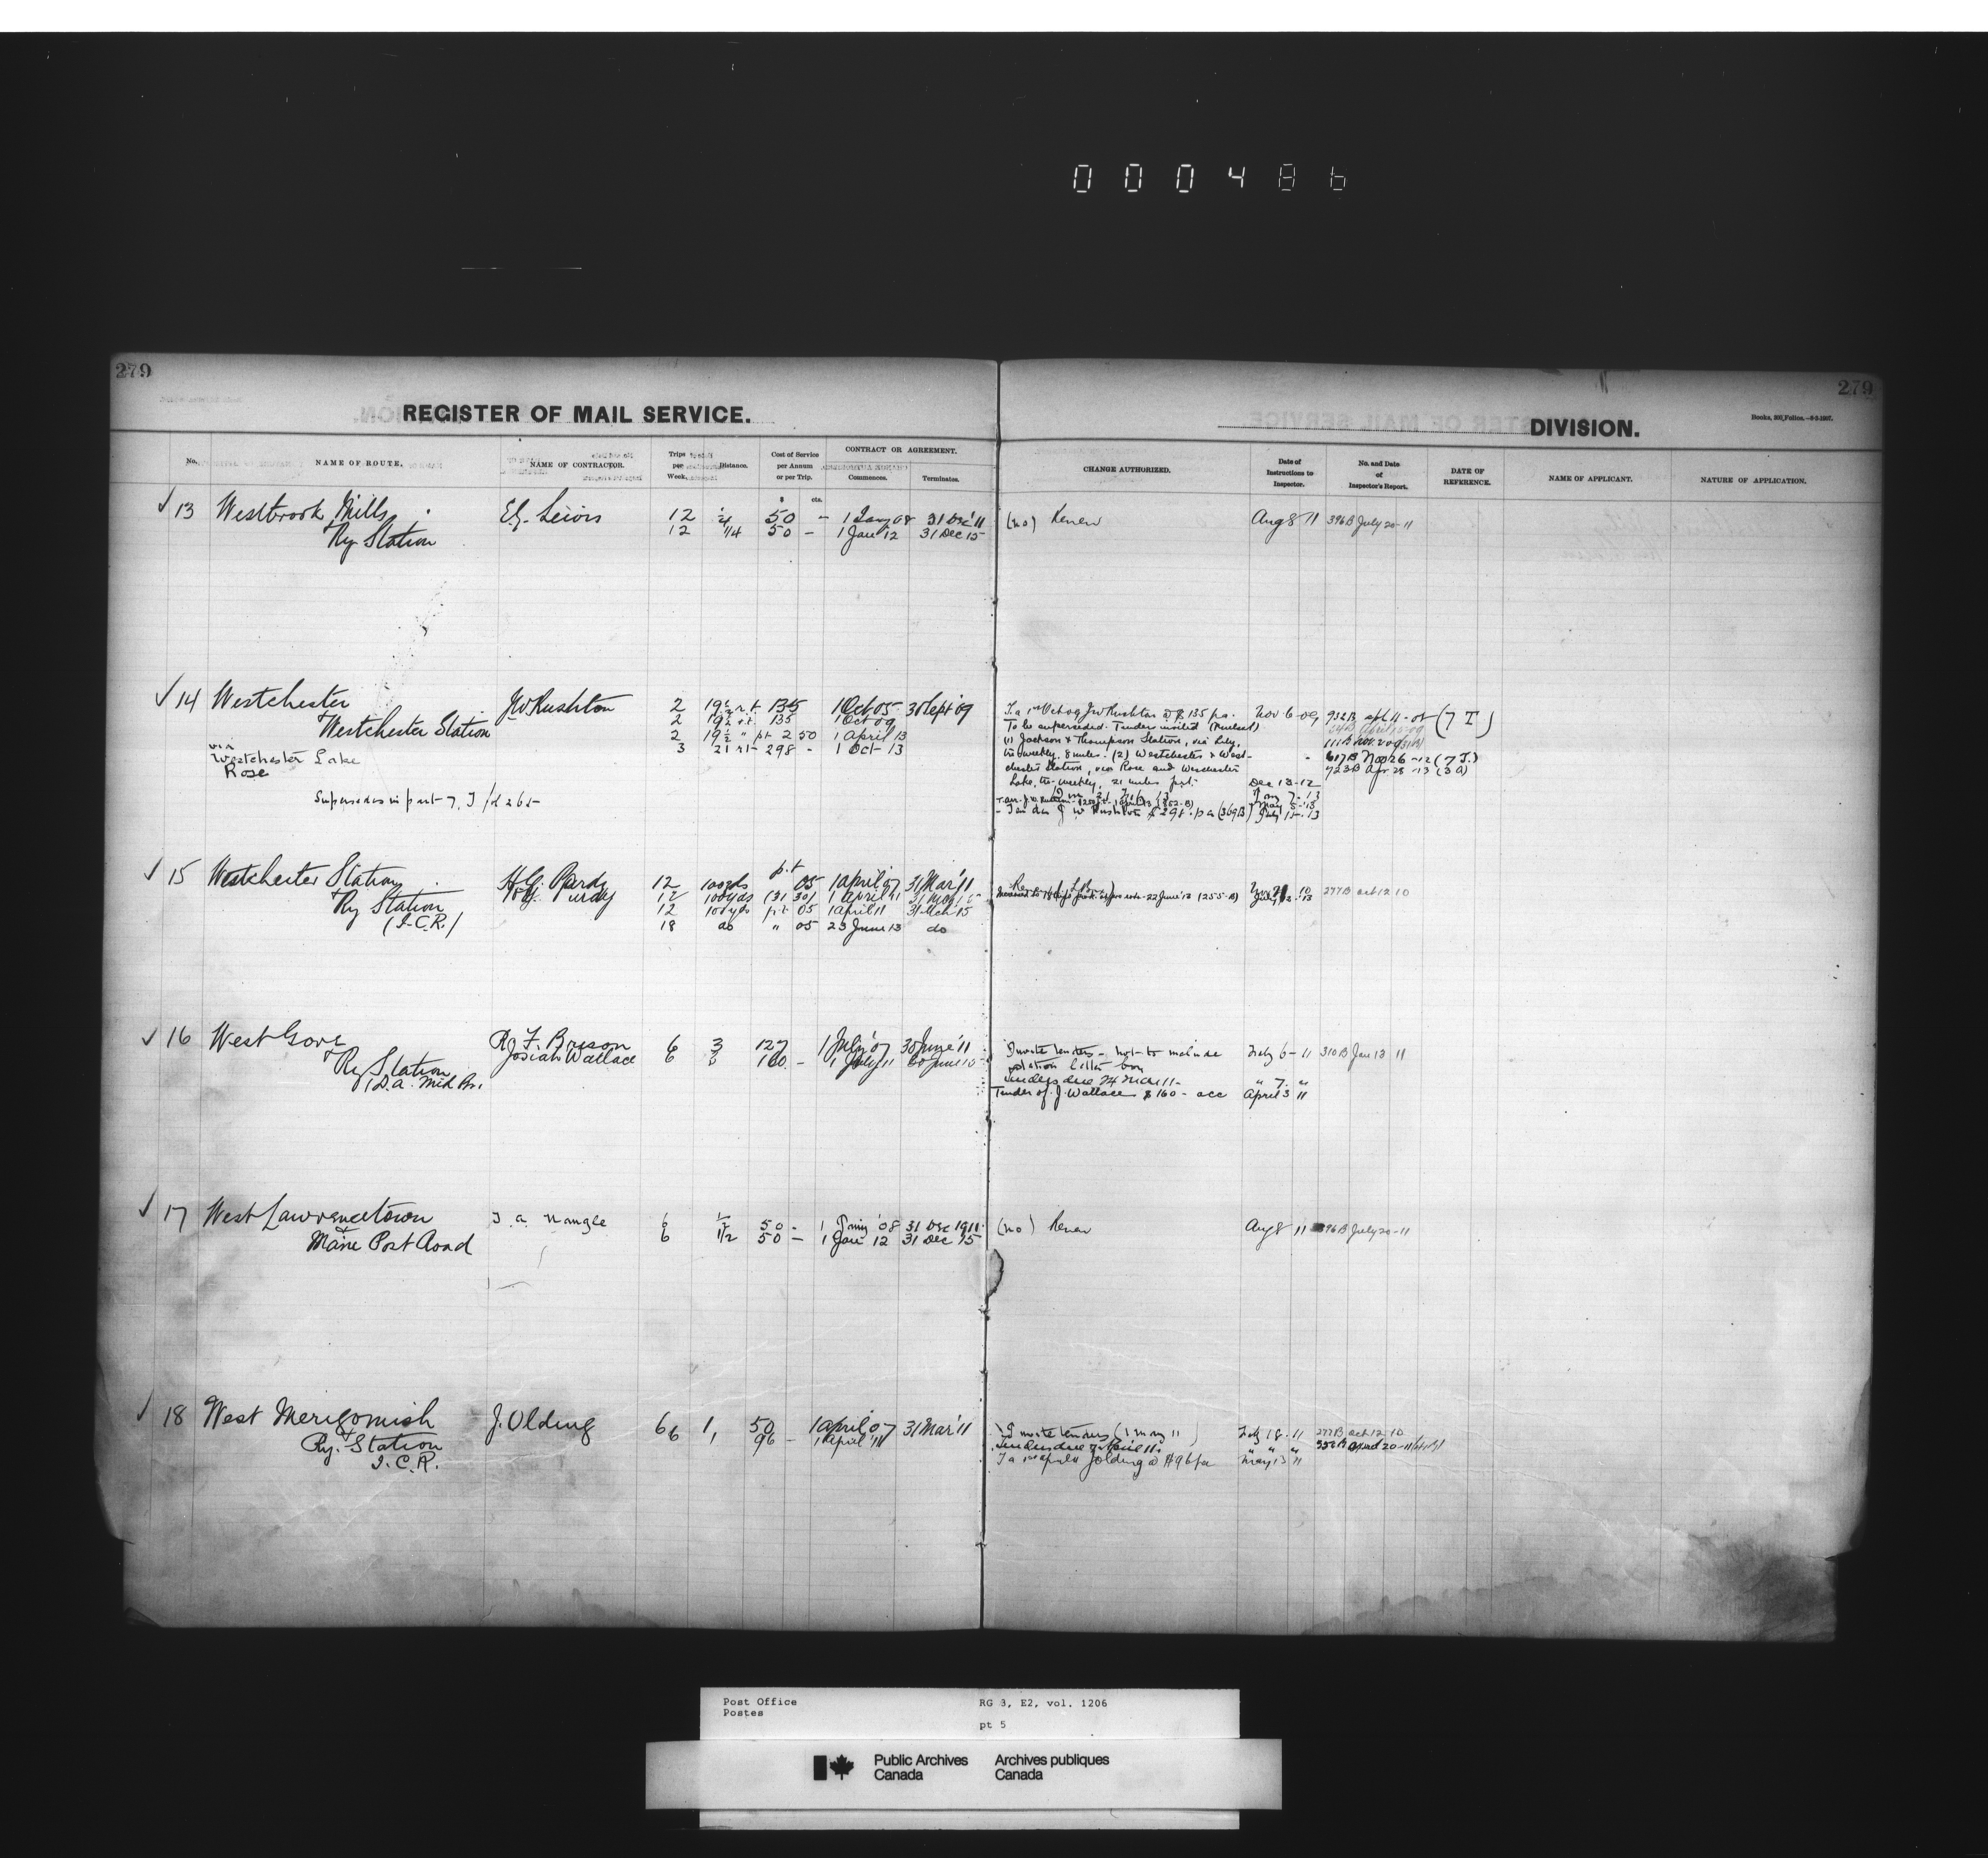 000486
279
279
REGISTER OF MAIL SERVICE.
DIVISION.
Books, 303, Folios.—5-3-1907.
No.
NAME OF ROUTE.
NAME OF CONTRACTOR.
Trips per Week.
Distance.
Cost of Service per Annum or per Trip.
CONTRACT OR AGREEMENT.
Commences.
Terminates.
CHANGE AUTHORIZED.
Date of Instructions to Inspector.
No. and Date of Inspector's Report.
DATE OF REFERENCE.
NAME OF APPLICANT.
NATURE OF APPLICATION.
$ cts.
√ 13 Westbrook Mills Lewis 12 1/4 50 - 1 Jany 08 31 Dec '11 (no) Renew Aug 8 11 396B July 20-11
& Ry Station 12 1/4 50 - 1 Jan '12 31 Dec 15
√ 14 Westchester J W Rushton 2 19 1/2 r.t. 135 1 Oct 05 30 Sept 09
& Westchester Station 2 19 1/2 r.t. 135 1 Oct 09
2 19 1/2 " pt 2 50 1 April 13
via 3 21 rt 298 - 1 Oct 13
Westchester Lake
Rose
Supersedes in part 7, J
T.a. 1st Oct 09 J W Rushton @ $135 p.a. Nov 6-09 (7 J)
To be superseded. Tenders invited
(1) Jackson & Thompson Station, via Lily,
tri-weekly, 8 miles. (2) Westchester & West- 617B Nov 26-12 (7 J.)
chester Station, via Rose and Westchester 723B Apr 28-13 (3 A)
Lake, tri-weekly, 21 miles Dec 13-12
Jany 7-13
May 5-13
J W Rushton $298. p a (369B) July 15-13
√ 15 Westchester Station H.G. Purdy 12 100yds p.t 05 1 April 07 31 Mar '11
& Ry Station H.G. Purdy 12 100yds (31 30) 1 April 11
(I.C.R.) 12 100yds p.t 05 1 April 11 31 Mch 15
18 do " 05 23 June 13 do
277B Oct 12 10
√ 16 West Gore R. F. Brison 6 3 127 1 July '07 30 June '11 Invite tenders - not to include Feby 6-11 310B Jan 13 11
& Ry Station Josiah Wallace 6 3 160. - 1 July 11 30 June 15 station letter box
(D.A. Mid Br. Tenders due 24 Mar 11- " 7. "
Tender of J. Wallace $160 - acc April 3 11
√ 17 West Lawrencetown J. A. Nangle 6 1/2 50 - 1 Jany '08 31 Dec 1911 (no) Renew Aug 8 11 396B July 20-11
& Main Post Road 6 1/2 50 - 1 Jan 12 31 Dec 15
√ 18 West Merigomish J. Olding 6 1, 50 1 April 07 31 Mar '11 Invite tenders (1 May 11) Feby 18-11 277B Oct 12 10
& Ry. Station 6 1 96 - 1 April '11 Tenders due April 20-11
I.C.R. T a 1st April J Olding @ $96 pa May 13 11
Post Office
Postes
RG 3, E2, vol. 1206
pt 5
Public Archives
Canada
Archives publiques
Canada